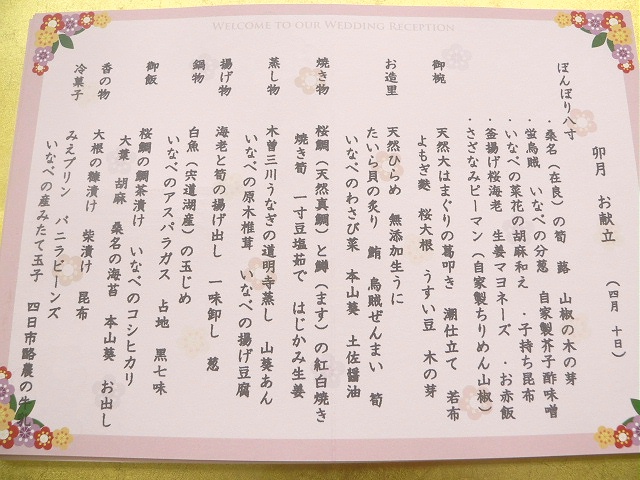 WELCOME TO OUR WEDDING RECEPTION
卯月 お献立 (四月 十日)
ぼんぼり八寸
・桑名(在良)の筍 蕗 山椒の木の芽
・蛍烏賊 いなべの分葱 自家製芥子酢味噌
・いなべの菜花の胡麻和え ・子持ち昆布
・釜揚げ桜海老 生姜マヨネーズ ・お赤飯
・さざなみピーマン(自家製ちりめん山椒)
御椀 天然大はまぐりの葛叩き 潮仕立て 若布
よもぎ麩 桜大根 うすい豆 木の芽
お造里 天然ひらめ 無添加生うに
たいら貝の炙り 鮪 烏賊ぜんまい 筍
いなべのわさび菜 本山葵 土佐醤油
焼き物 桜鯛(天然真鯛)と鱒(ます)の紅白焼き
焼き筍 一寸豆塩茹で はじかみ生姜
蒸し物 木曽三川うなぎの道明寺蒸し 山葵あん
いなべの原木椎茸 いなべの揚げ豆腐
揚げ物 海老と筍の揚げ出し 一味卸し 葱
鍋物 白魚(宍道湖産)の玉じめ
いなべのアスパラガス 占地 黒七味
御飯 桜鯛の鯛茶漬け いなべのコシヒカリ
大葉 胡麻 桑名の海苔 本山葵 お出し
香の物 大根の糠漬け 柴漬け 昆布
冷菓子 みえプリン バニラビーンズ
いなべの産みたて玉子 四日市酪農の牛乳